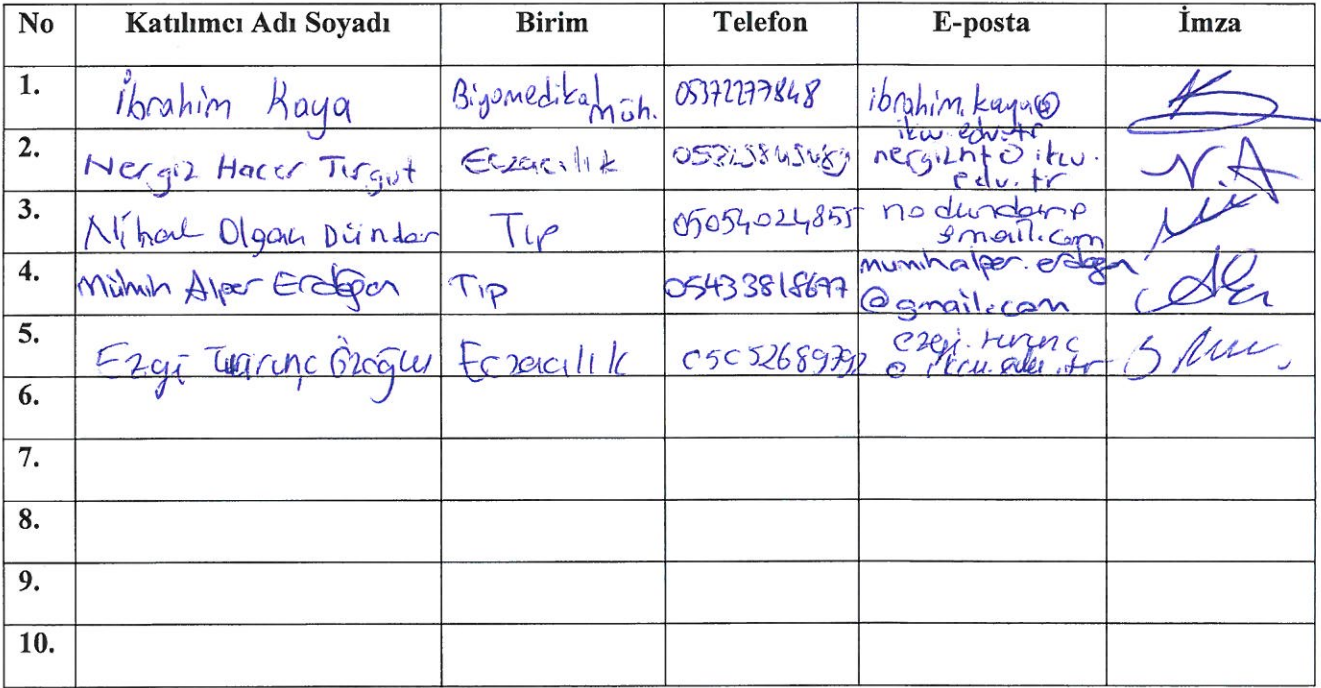 No Katılımcı Adı Soyadı Birim Telefon E-posta İmza
1. İbrahim Kaya Biyomedikal Müh. 05372277848 ibrahim.kaya@
ikcu.edu.tr
2. Nergiz Hacer Turgut Eczacılık nergizht@ikcu.
edu.tr
3. Nihal Olgaç Dündar Tıp 05054024855 nodundar@
gmail.com
4. Mümin Alper Erdoğan Tıp 05433818677 muminalper.erdogan
@gmail.com
5. Ezgi Turunç Özoğlu Eczacılık 05052689792 ezgi.turunc
@ikcu.edu.tr
6.
7.
8.
9.
10.